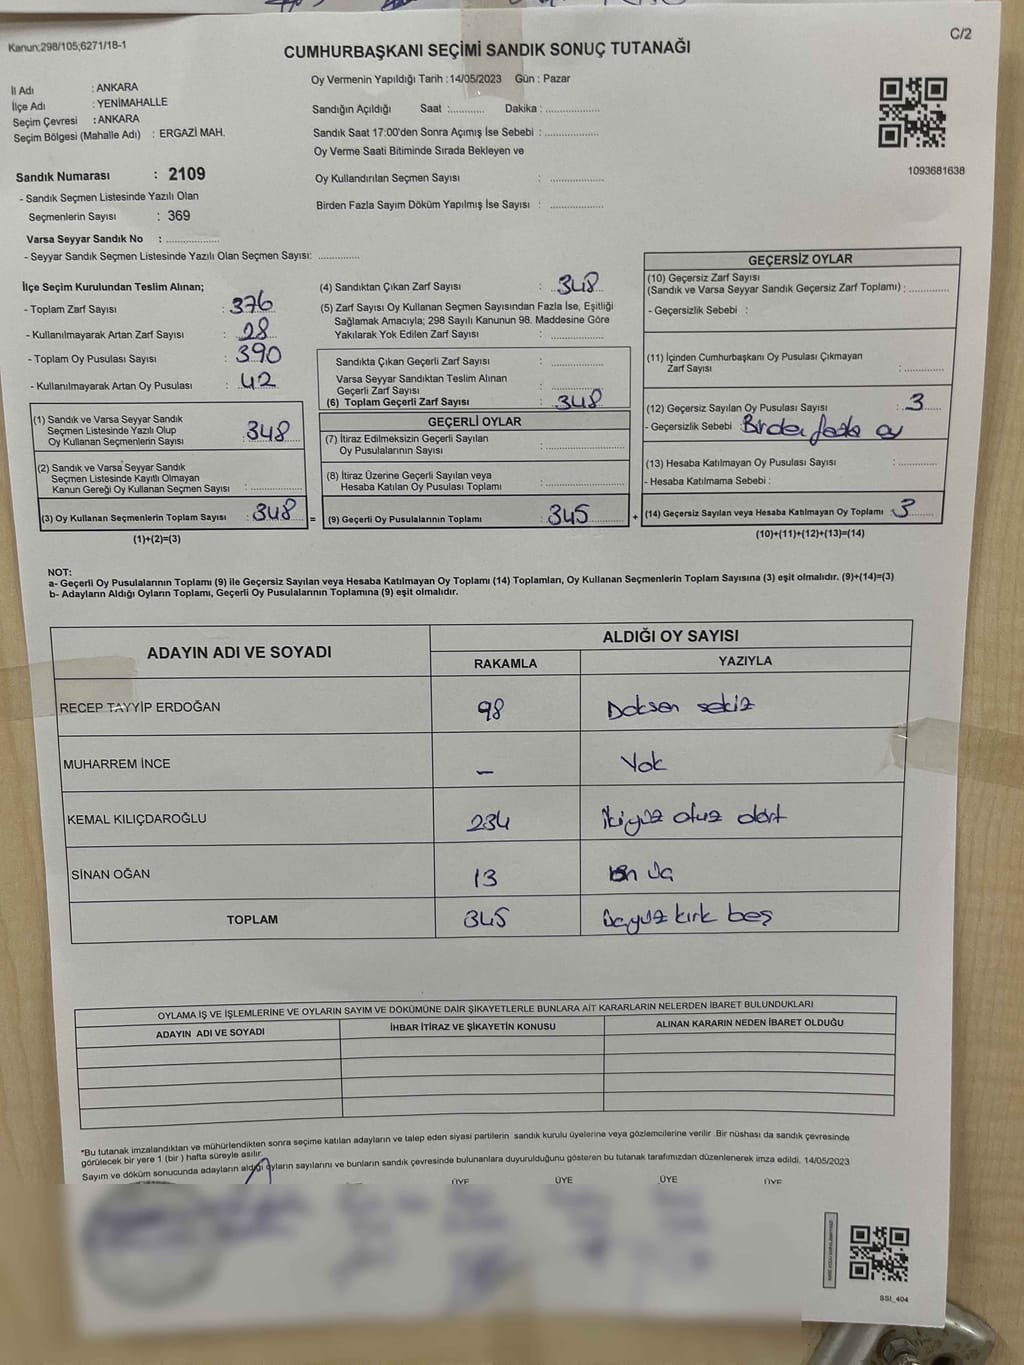 Kanun;298/105;6271/18-1
C/2
CUMHURBAŞKANI SEÇİMİ SANDIK SONUÇ TUTANAĞI
Oy Vermenin Yapıldığı Tarih :14/05/2023 Gün : Pazar
İl Adı : ANKARA
İlçe Adı : YENİMAHALLE
Seçim Çevresi : ANKARA
Seçim Bölgesi (Mahalle Adı) : ERGAZİ MAH.
Sandığın Açıldığı Saat :........... Dakika : ..................
Sandık Saat 17:00'den Sonra Açımış İse Sebebi : ..................
Oy Verme Saati Bitiminde Sırada Bekleyen ve
Oy Kullandırılan Seçmen Sayısı : ..................
Birden Fazla Sayım Döküm Yapılmış İse Sayısı : ..................
1093681638
Sandık Numarası : 2109
- Sandık Seçmen Listesinde Yazılı Olan
Seçmenlerin Sayısı : 369
Varsa Seyyar Sandık No : ..................
- Seyyar Sandık Seçmen Listesinde Yazılı Olan Seçmen Sayısı: ..............
İlçe Seçim Kurulundan Teslim Alınan;
- Toplam Zarf Sayısı : 376
- Kullanılmayarak Artan Zarf Sayısı : 28
- Toplam Oy Pusulası Sayısı : 390
- Kullanılmayarak Artan Oy Pusulası : 42
(1) Sandık ve Varsa Seyyar Sandık
Seçmen Listesinde Yazılı Olup
Oy Kullanan Seçmenlerin Sayısı : 348
(2) Sandık ve Varsa Seyyar Sandık
Seçmen Listesinde Kayıtlı Olmayan
Kanun Gereği Oy Kullanan Seçmen Sayısı : ..................
(3) Oy Kullanan Seçmenlerin Toplam Sayısı : 348
(1)+(2)=(3)
(4) Sandıktan Çıkan Zarf Sayısı : 348
(5) Zarf Sayısı Oy Kullanan Seçmen Sayısından Fazla İse, Eşitliği
Sağlamak Amacıyla; 298 Sayılı Kanunun 98. Maddesine Göre
Yakılarak Yok Edilen Zarf Sayısı : ..................
Sandıkta Çıkan Geçerli Zarf Sayısı : ..................
Varsa Seyyar Sandıktan Teslim Alınan
Geçerli Zarf Sayısı : ..................
(6) Toplam Geçerli Zarf Sayısı : 348
GEÇERLİ OYLAR
(7) İtiraz Edilmeksizin Geçerli Sayılan
Oy Pusulalarının Sayısı : ..................
(8) İtiraz Üzerine Geçerli Sayılan veya
Hesaba Katılan Oy Pusulası Toplamı : ..................
= (9) Geçerli Oy Pusulalarının Toplamı : 345 +
GEÇERSİZ OYLAR
(10) Geçersiz Zarf Sayısı
(Sandık ve Varsa Seyyar Sandık Geçersiz Zarf Toplamı) : ..............
- Geçersizlik Sebebi :
(11) İçinden Cumhurbaşkanı Oy Pusulası Çıkmayan
Zarf Sayısı : ..............
(12) Geçersiz Sayılan Oy Pusulası Sayısı : 3
- Geçersizlik Sebebi : Birden fazla oy
(13) Hesaba Katılmayan Oy Pusulası Sayısı : ..............
- Hesaba Katılmama Sebebi :
(14) Geçersiz Sayılan veya Hesaba Katılmayan Oy Toplamı : 3
(10)+(11)+(12)+(13)=(14)
NOT:
a- Geçerli Oy Pusulalarının Toplamı (9) ile Geçersiz Sayılan veya Hesaba Katılmayan Oy Toplamı (14) Toplamları, Oy Kullanan Seçmenlerin Toplam Sayısına (3) eşit olmalıdır. (9)+(14)=(3)
b- Adayların Aldığı Oyların Toplamı, Geçerli Oy Pusulalarının Toplamına (9) eşit olmalıdır.
ADAYIN ADI VE SOYADI
ALDIĞI OY SAYISI
RAKAMLA YAZIYLA
RECEP TAYYİP ERDOĞAN 98 Doksan sekiz
MUHARREM İNCE – Yok
KEMAL KILIÇDAROĞLU 234 İkiyüz otuz dört
SİNAN OĞAN 13 on üç
TOPLAM 345 üçyüz kırk beş
OYLAMA İŞ VE İŞLEMLERİNE VE OYLARIN SAYIM VE DÖKÜMÜNE DAİR ŞİKAYETLERLE BUNLARA AİT KARARLARIN NELERDEN İBARET BULUNDUKLARI
ADAYIN ADI VE SOYADI İHBAR İTİRAZ VE ŞİKAYETİN KONUSU ALINAN KARARIN NEDEN İBARET OLDUĞU
*Bu tutanak imzalandıktan ve mühürlendikten sonra seçime katılan adayların ve talep eden siyasi partilerin sandık kurulu üyelerine veya gözlemcilerine verilir .Bir nüshası da sandık çevresinde
görülecek bir yere 1 (bir ) hafta süreyle asılır.
Sayım ve döküm sonucunda adayların aldığı oyların sayılarını ve bunların sandık çevresinde bulunanlara duyurulduğunu gösteren bu tutanak tarafımızdan düzenlenerek imza edildi. 14/05/2023
ÜYE ÜYE ÜYE ÜYE
SSI_404